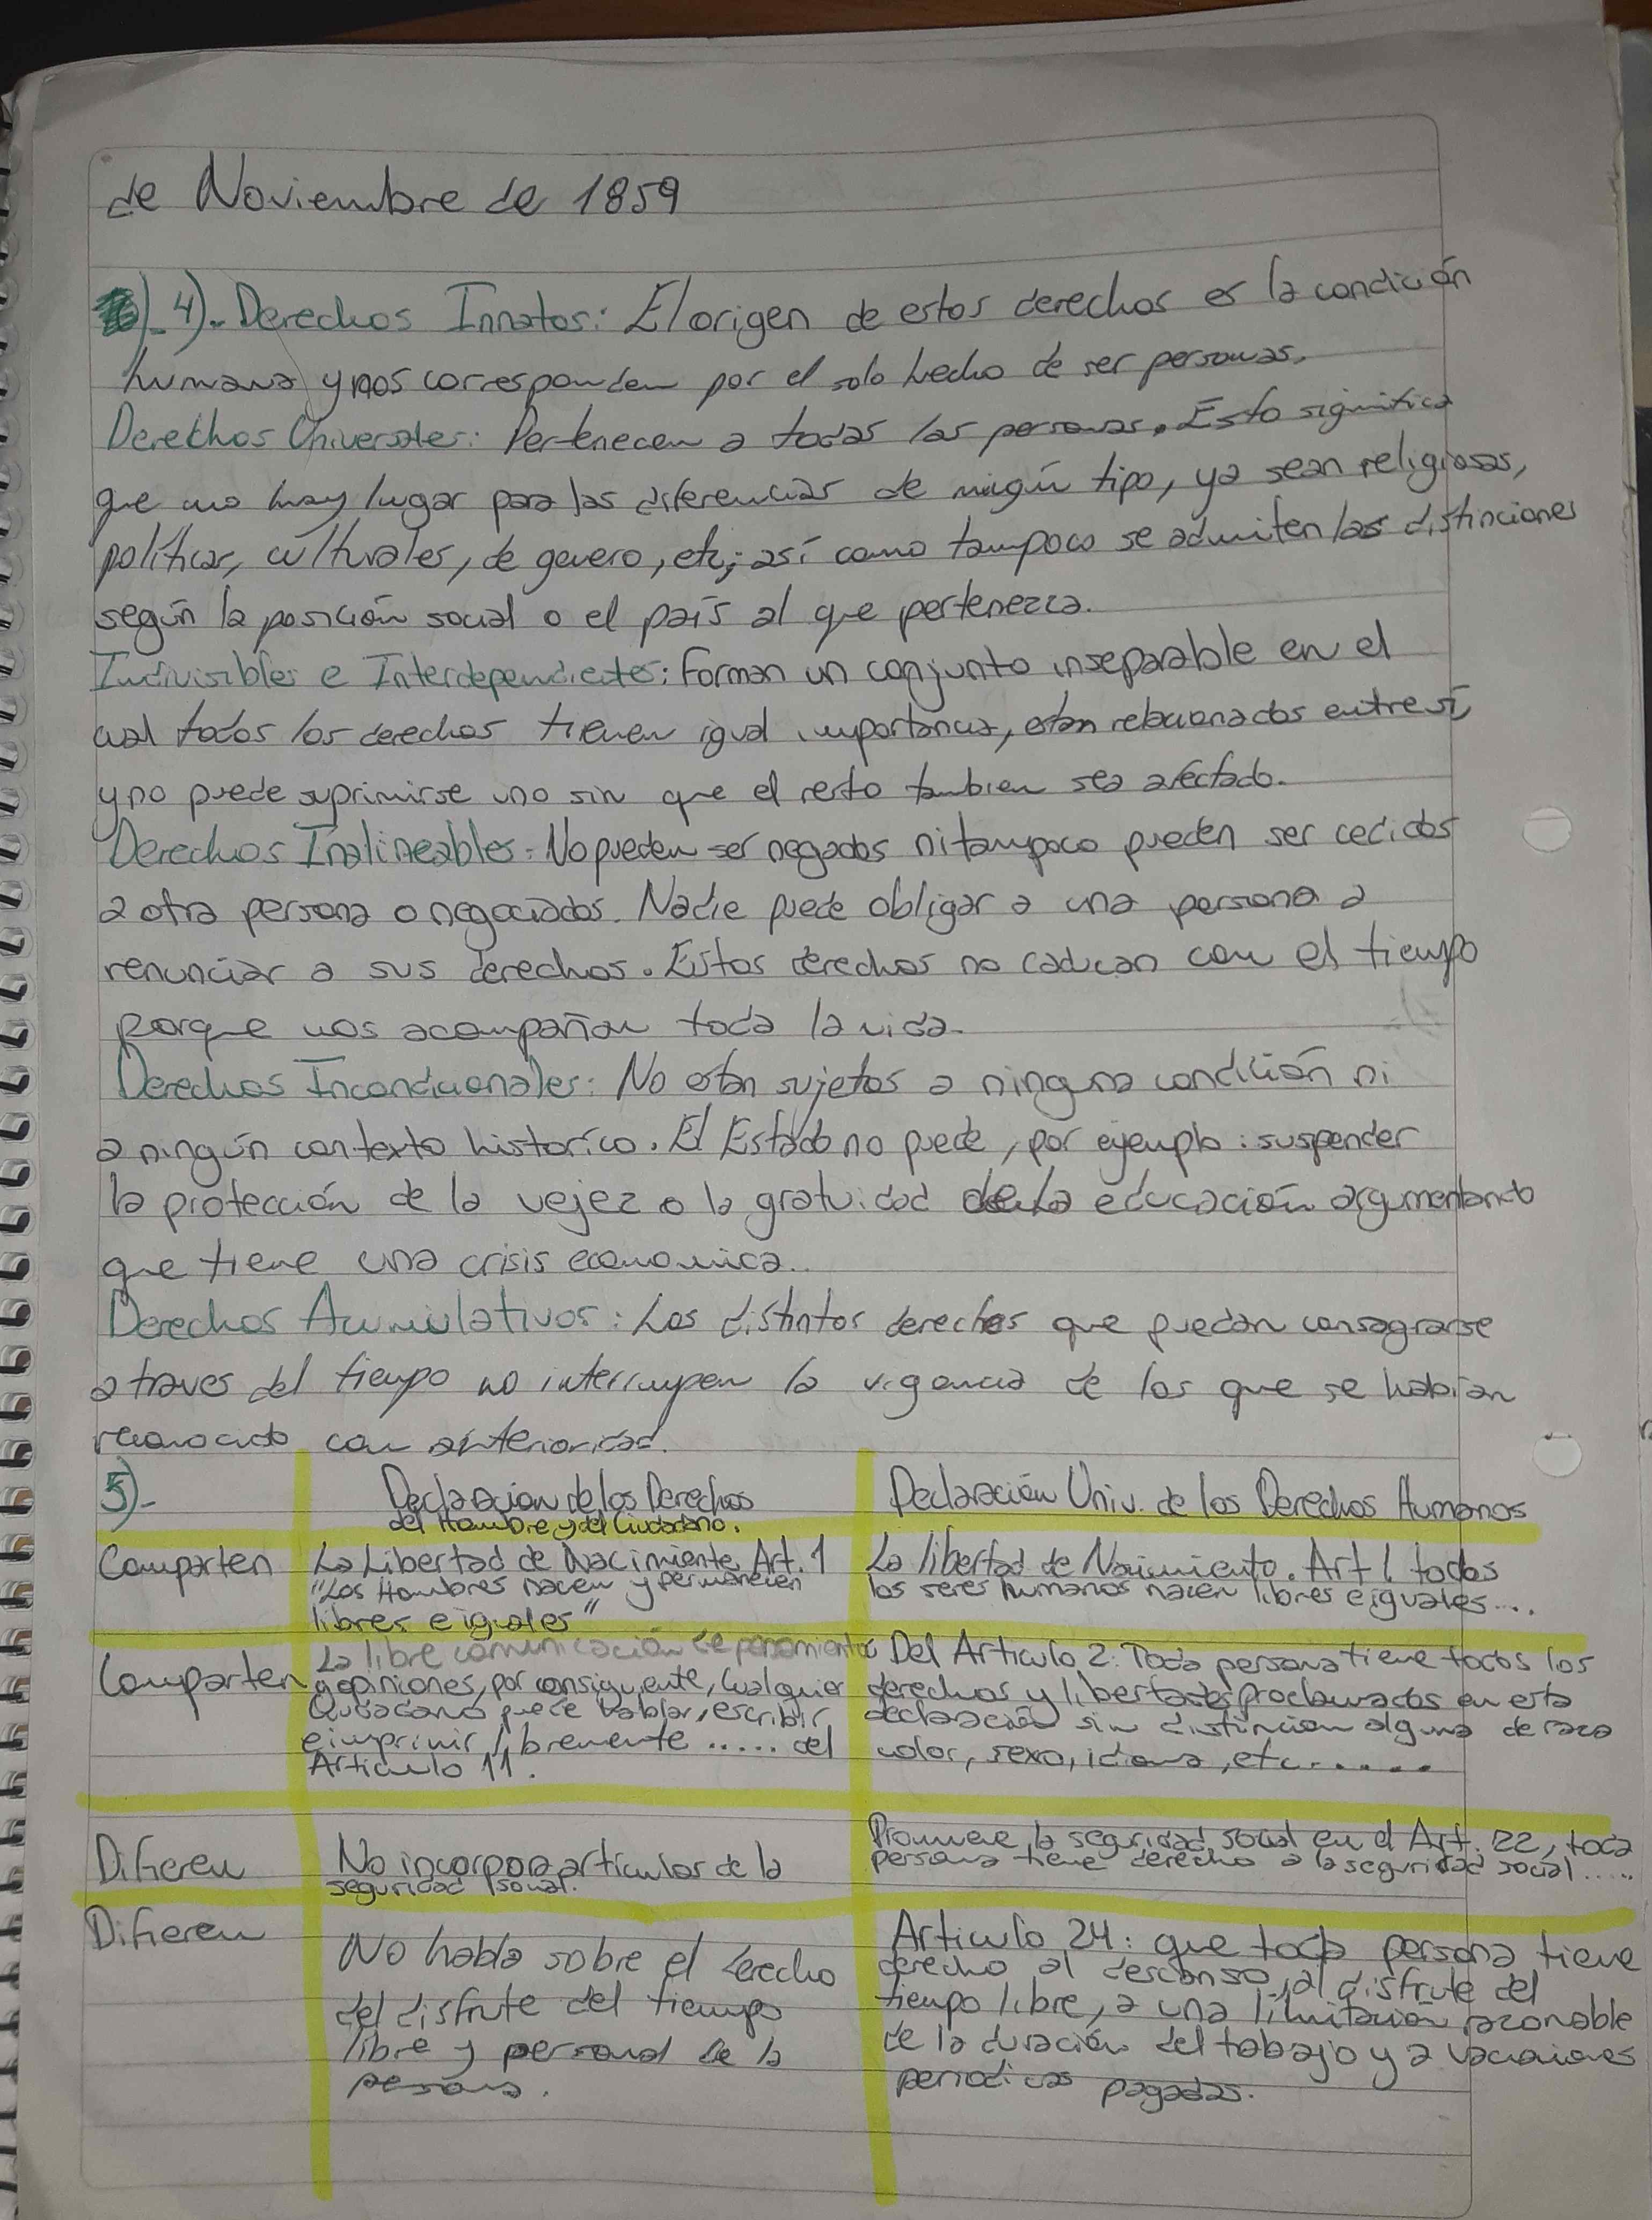 de Noviembre de 1859
4).- Derechos Innatos: El origen de estos derechos es la condición
humana y nos corresponden por el solo hecho de ser personas.
Derechos Universales: Pertenecen a todas las personas. Esto significa
que no hay lugar para las diferencias de ningún tipo, ya sean religiosas,
políticas, culturales, de genero, etc; así como tampoco se admiten las distinciones
según la posición social o el país al que pertenezca.
Indivisibles e Interdependientes: Forman un conjunto inseparable en el
cual todos los derechos tienen igual importancia, estan relacionados entre sí,
y no puede suprimirse uno sin que el resto tambien sea afectado.
Derechos Inalineables: No pueden ser negados ni tampoco pueden ser cedidos
a otra persona o negociados. Nadie puede obligar a una persona a
renunciar a sus derechos. Estos derechos no caducan con el tiempo
porque nos acompañan toda la vida.
Derechos Incondicionales: No estan sujetos a ninguna condición ni
a ningún contexto historico. El Estado no puede, por ejemplo: suspender
la protección de la vejez o la gratuidad de la educación argumentando
que tiene una crisis economica..
Derechos Acumulativos: Los distintos derechos que puedan consagrarse
a traves del tiempo no interrumpen la vigencia de los que se habian
reconocido con anterioridad.
5)-
Declaracion de los Derechos
del Hombre y del Ciudadano.
Declaración Univ. de los Derechos Humanos
Comparten
La Libertad de Nacimiento. Art. 1
"Los Hombres nacen y permanecen
libres e iguales"
La libertad de Nacimiento. Art 1. todos
los seres humanos nacen libres e iguales...
Comparten
La libre comunicación de pensamientos
y opiniones, por consiguiente, cualquier
Ciudadano puede hablar, escribir
e imprimir libremente ..... del
Articulo 11.
Del Articulo 2: Toda persona tiene todos los
derechos y libertades proclamados en esta
declaración sin distincion alguna de raza
color, sexo, idioma, etc......
Difieren
No incorpora articulos de la
seguridad social.
Promueve la seguridad social en el Art. 22, toda
persona tiene derecho a la seguridad social.....
Difieren
No habla sobre el derecho
del disfrute del tiempo
libre y personal de la
persona.
Articulo 24: que toda persona tiene
derecho al descanso, al disfrute del
tiempo libre, a una limitación razonable
de la duración del tabajo y a vacaciones
periodicas pagadas.